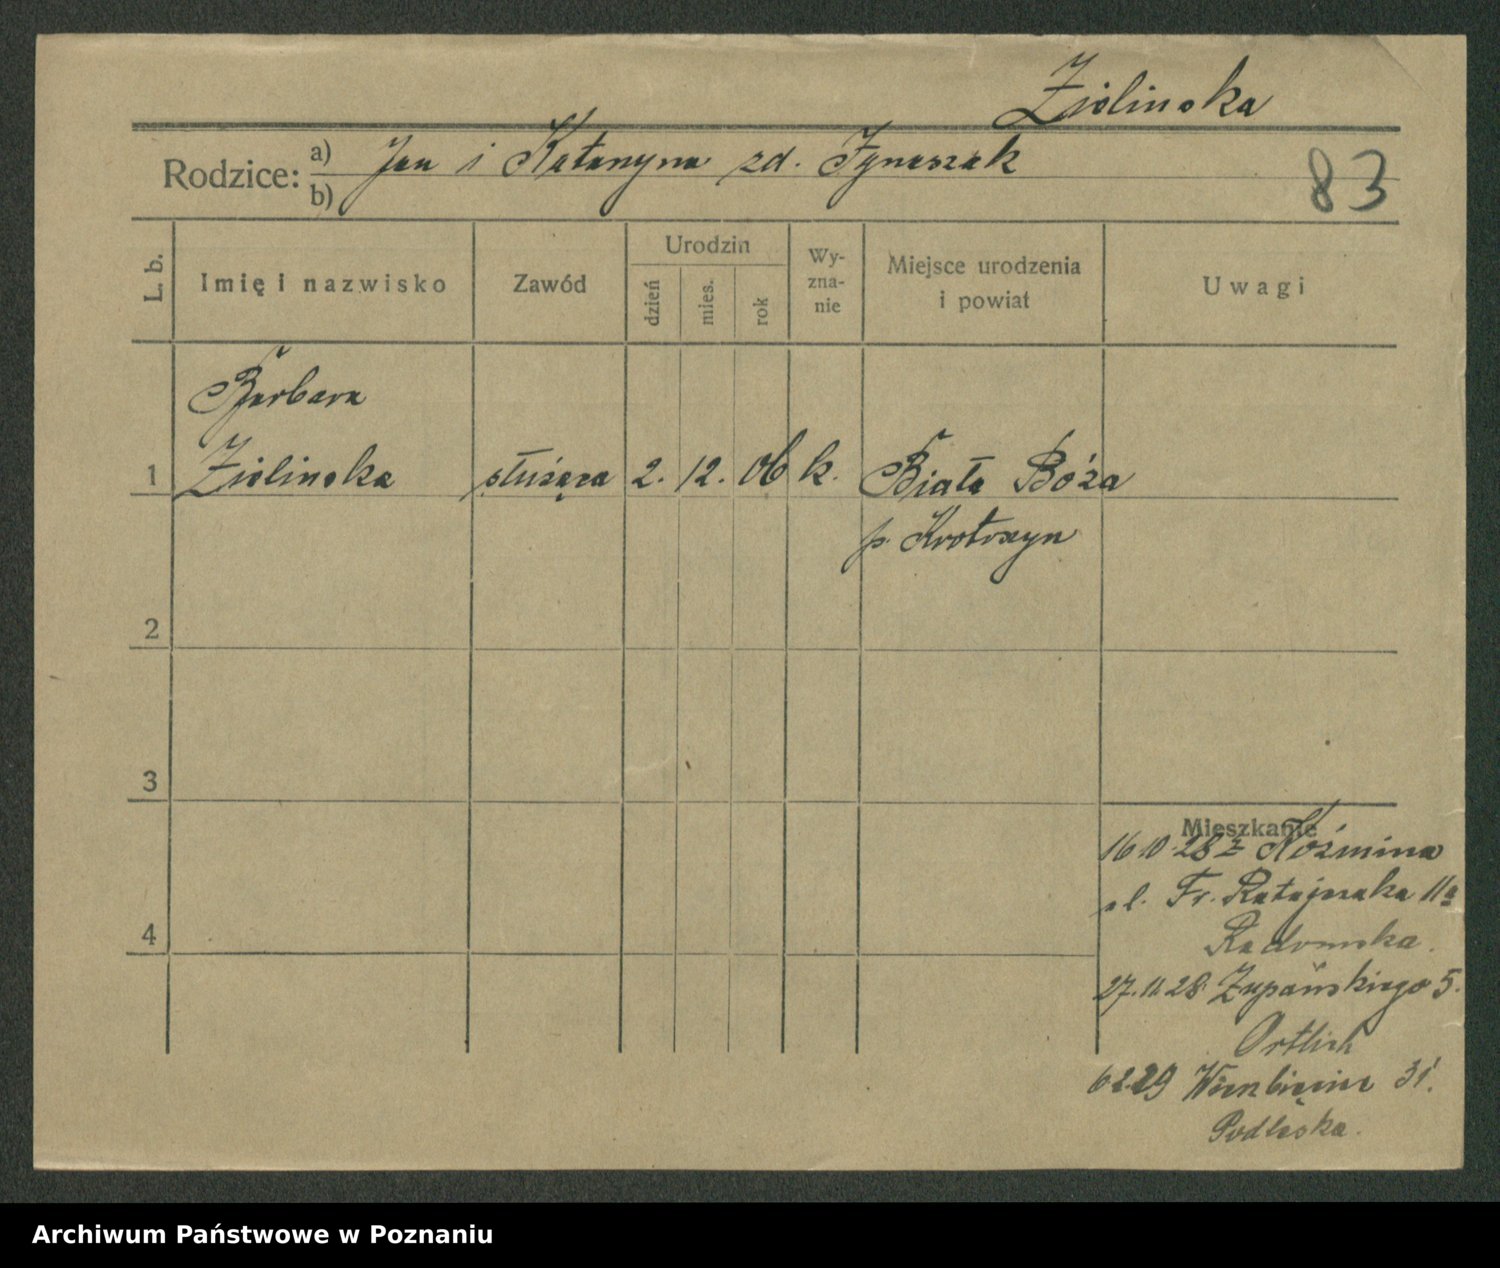 Zielinska
Rodzice: a) Jan i Katarzyna zd. Ignaszak
b)
83
L. b.
Imię i nazwisko
Zawód
Urodzin
dzień
mies.
rok
Wy-
zna-
nie
Miejsce urodzenia
i powiat
Uwagi
Barbara
1 Zielinska służąca 2. 12. 06 k. Biała Bóża
p. Krotoszyn
2
3
4
Mieszkanie
16.10.28 z Koźmina
ul. Fr. Ratajczaka 11a
Radomska.
27.11.28 Żupańskiego 5.
Ortlieb
6.2.29 Wierzbięcice 31.
Podleska.
Archiwum Państwowe w Poznaniu